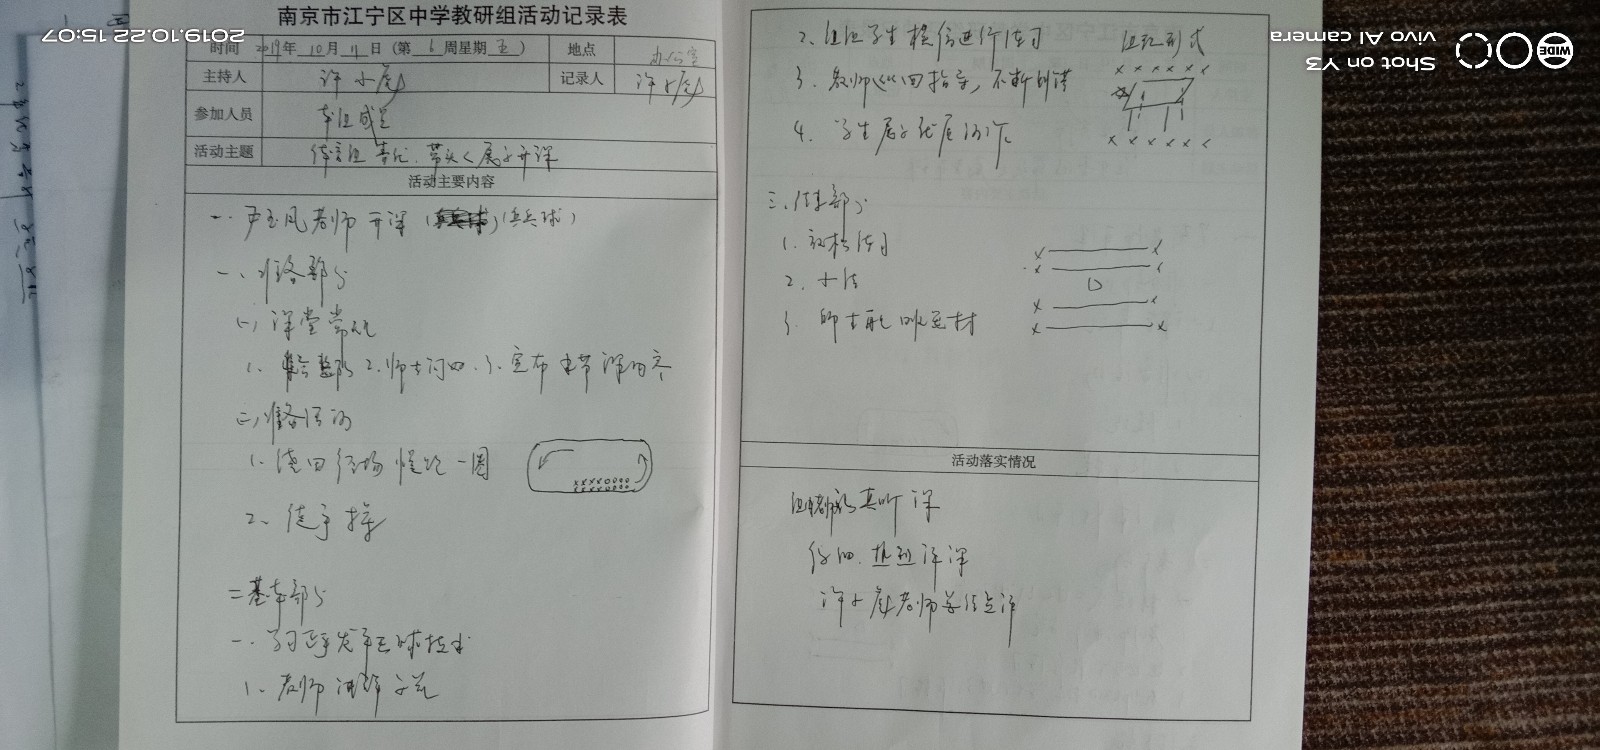 南京市江宁区中学教研组活动记录表
时间 2019年 10月 11日（第 6 周星期 五 ） 地点 办公室
主持人 许小虎 记录人 许小虎
参加人员 本组成员
活动主题 体育组 开课
活动主要内容
一. 老师开课（乒乓球）
一、准备部分
(一) 课堂常规
1. 集合整队 2. 师生问四 3. 宣布本节课内容
(二) 准备活动
1. 绕田径场慢跑一圈
2、徒手操
二 基本部分
一. 学习正手发平击球技术
1、教师讲解示范
2、组织学生模仿进行练习 组织形式
3. 教师巡回指导，不断纠错
4. 学生展示
三. 结束部分
1. 放松练习
2. 小结
3. 师生 收器材
活动落实情况
组内老师认真听课
仔细. 热烈评课
许小虎老师总结点评
Shot on Y3
vivo AI camera
WIDE
2019.10.22 15:07